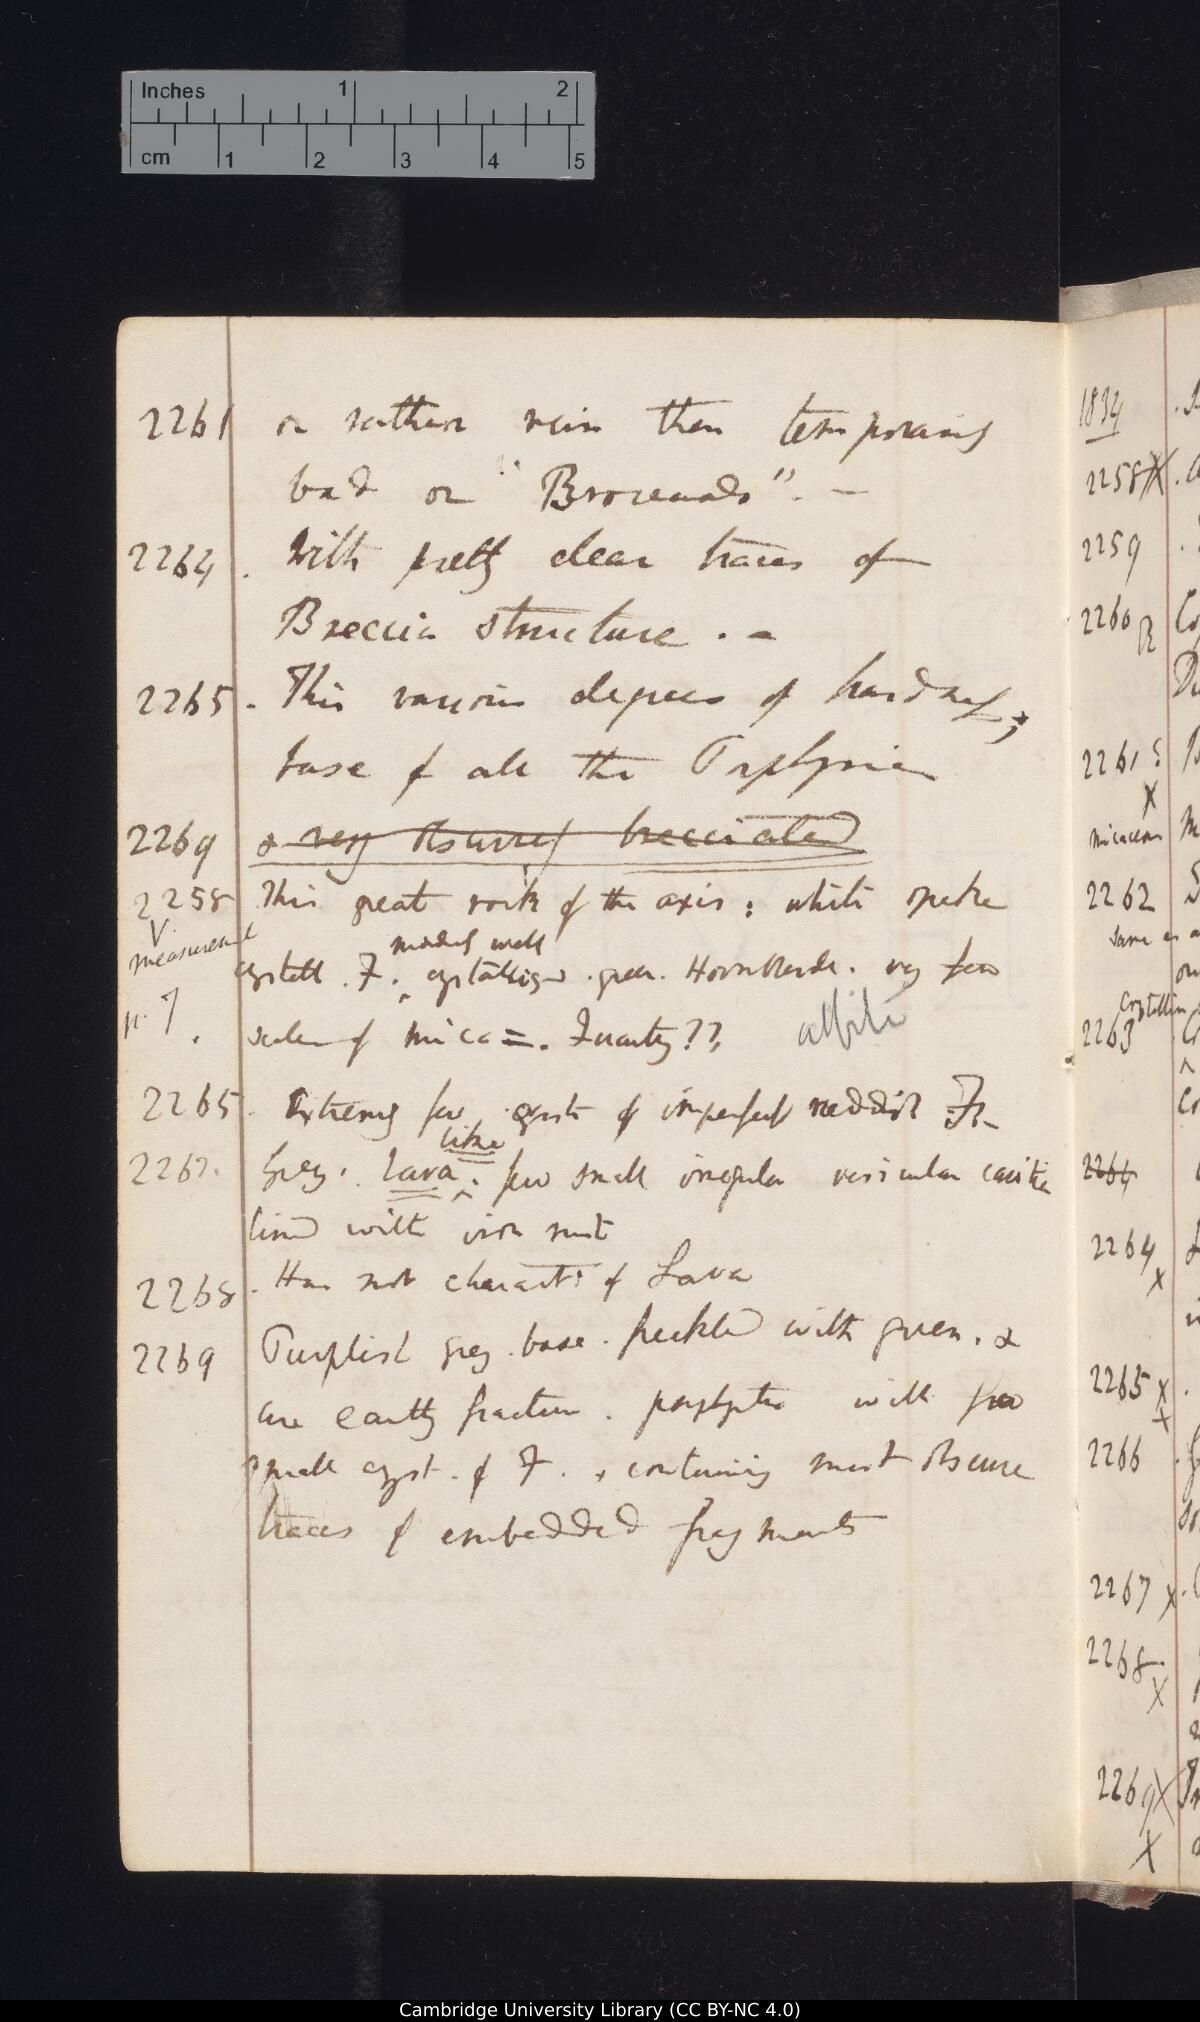 Inches 1 2
cm 1 2 3 4 5
2261 or rather vein than temporary
bed or "Broceado". —
2264. With pretty clear traces of
Breccia structure. —
2265. This various degrees of hardness;
base of all the Porphyries
2269 & very obscurely brecciated
2258 This great rock of the axis: white opake
V measurement
moderately well
crystall. F. ^ crystallized. green. Hornblende. very few
p. 7.
scales of mica =. Quartz??, albite
2265. Extremely few cryst of imperfect reddish F:—
like
2267. Grey. Lava ^. few small irregular vesicular cavities
lined with iron rust
2268. Has not charact: of Lava
2269 Purplish grey. base. freckled with green. &
earthy fracture. porphyritic with few
small cryst. of F. & containing most obscure
traces of embedded fragments
1834
2258 X
2259
2260 R
2261
X
micaceous
2262
same as
crystalline
2263
2264
2264
X
2265 X
X
2266
2267 X
2268
X
2269 X
X
Cambridge University Library (CC BY-NC 4.0)